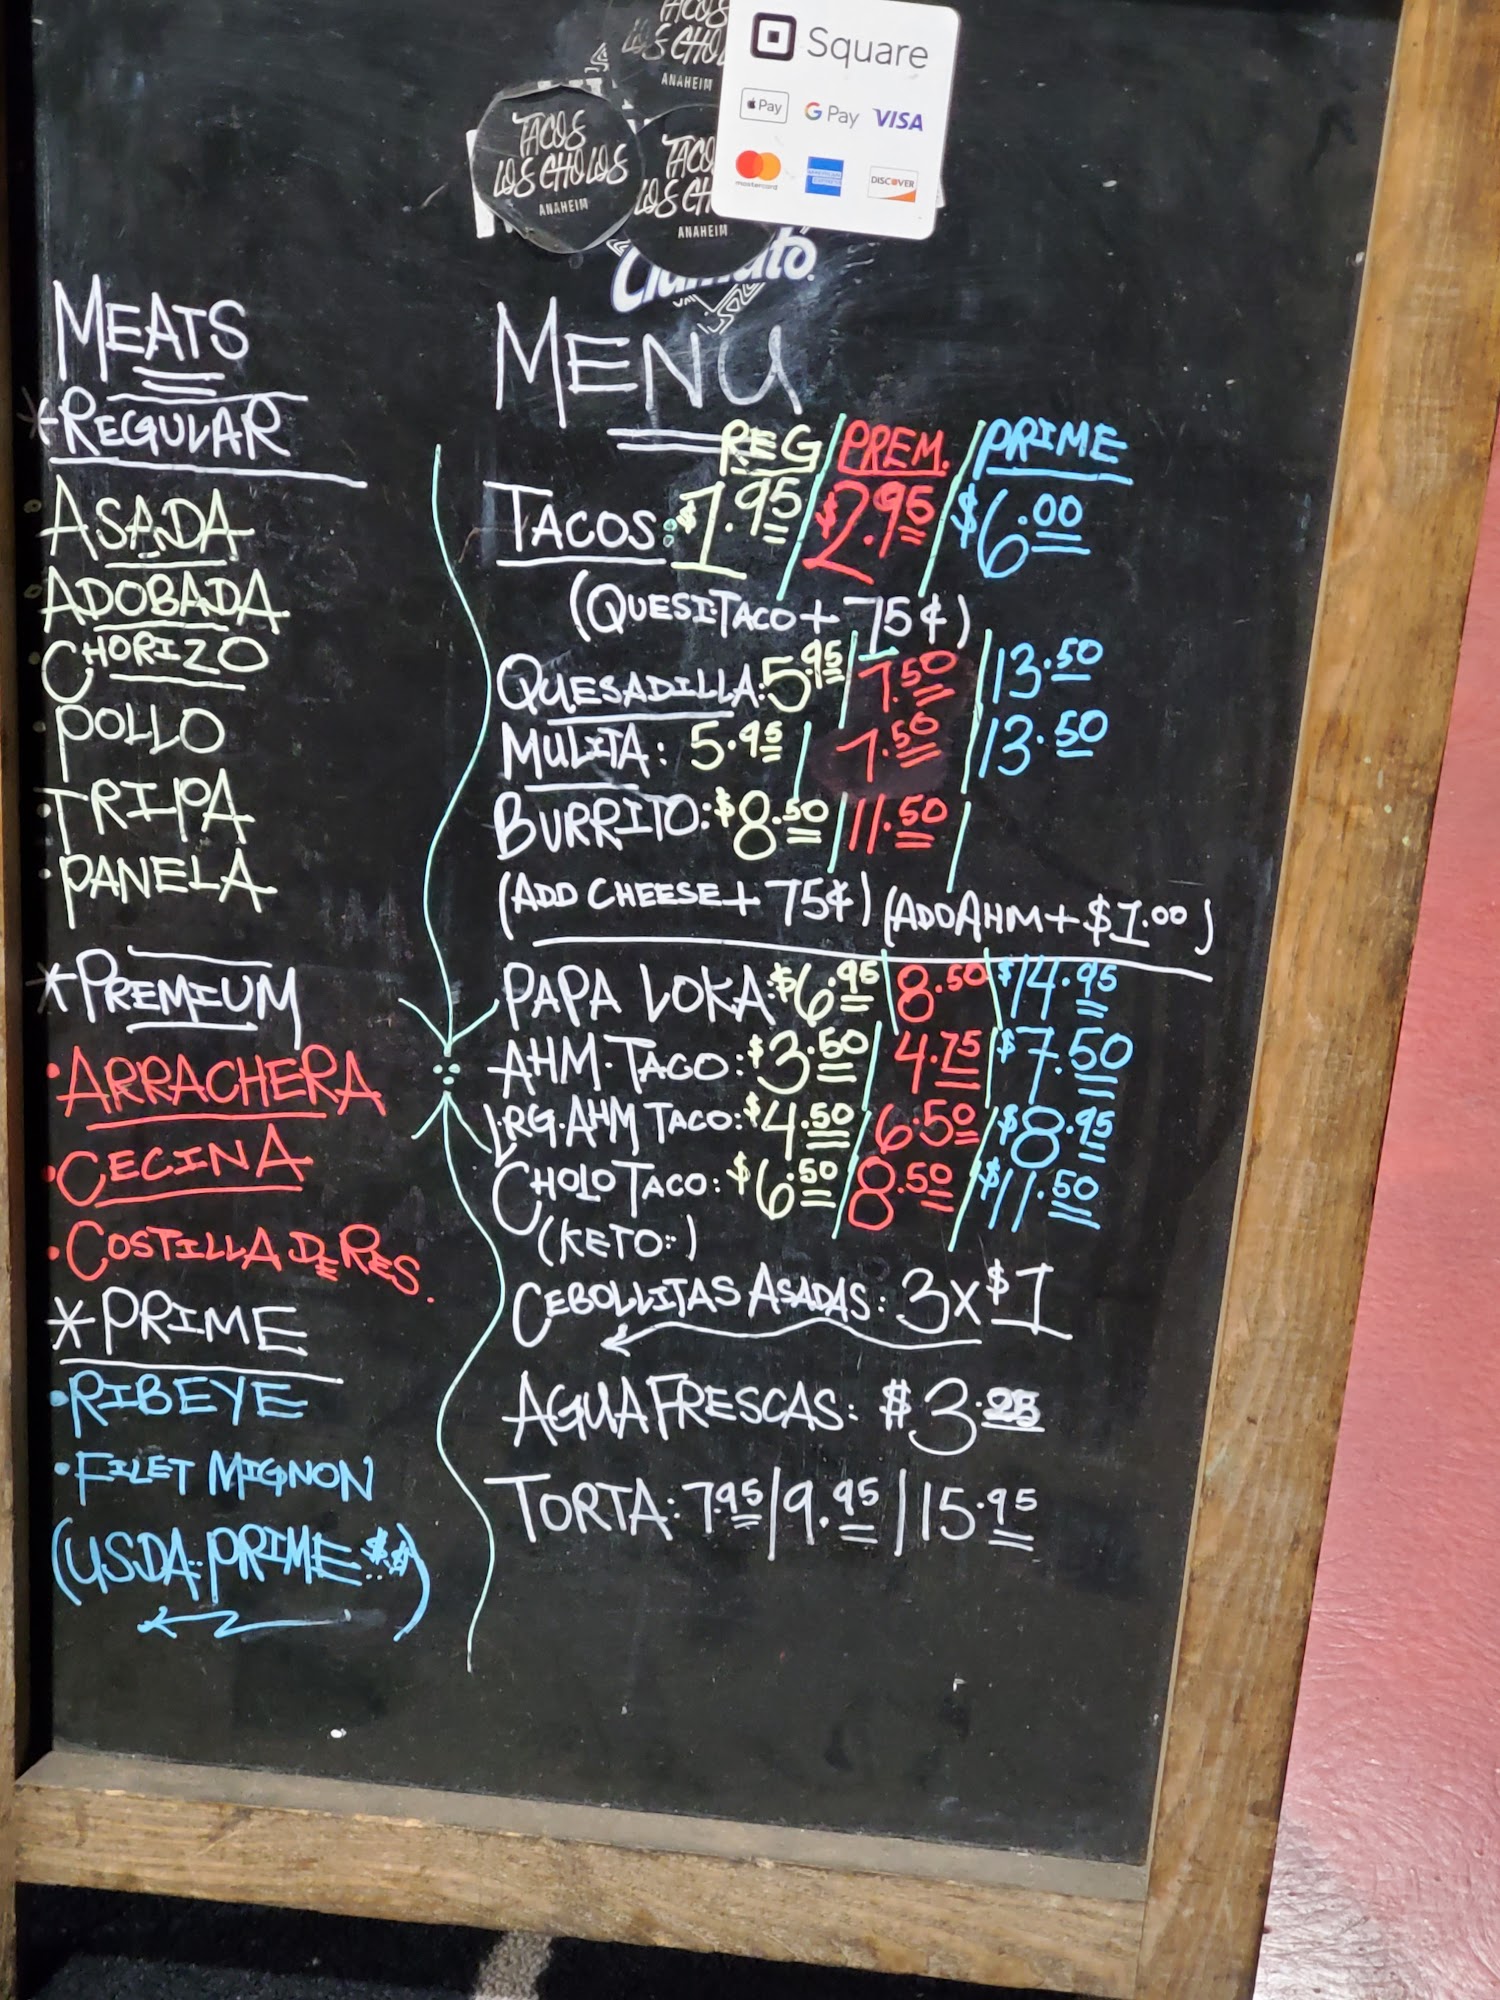 TACOS
LOS CHO
ANAHEIM
TACOS
LOS CHOLOS
ANAHEIM
TACO
LOS CH
ANAHEIM
Square
Pay
G Pay
VISA
mastercard
AMERICAN EXPRESS
DISCOVER
MEATS
*REGULAR
• ASADA
• ADOBADA
• CHORIZO
• POLLO
• TRIPA
• PANELA
*PREMIUM
• ARRACHERA
• CECINA
• COSTILLA DE RES.
*PRIME
• RIBEYE
• FILET MIGNON
(USDA PRIME $$)
MENU
REG / PREM. / PRIME
TACOS: $1.95 / $2.95 / $6.00
(QUESI-TACO + 75¢)
QUESADILLA: 5.95 / 7.50 / 13.50
MULITA: 5.95 / 7.50 / 13.50
BURRITO: $8.50 / 11.50 /
(ADD CHEESE + 75¢) (ADD AHM + $1.00)
PAPA LOKA: $6.95 / 8.50 / $14.95
AHM. TACO: $3.50 / 4.75 / $7.50
LRG. AHM TACO: $4.50 / 6.50 / $8.95
CHOLO TACO: $6.50 / 8.50 / $11.50
(KETO:)
CEBOLLITAS ASADAS: 3x$1
AGUA FRESCAS: $3.25
TORTA: 7.95 / 9.95 / 15.95